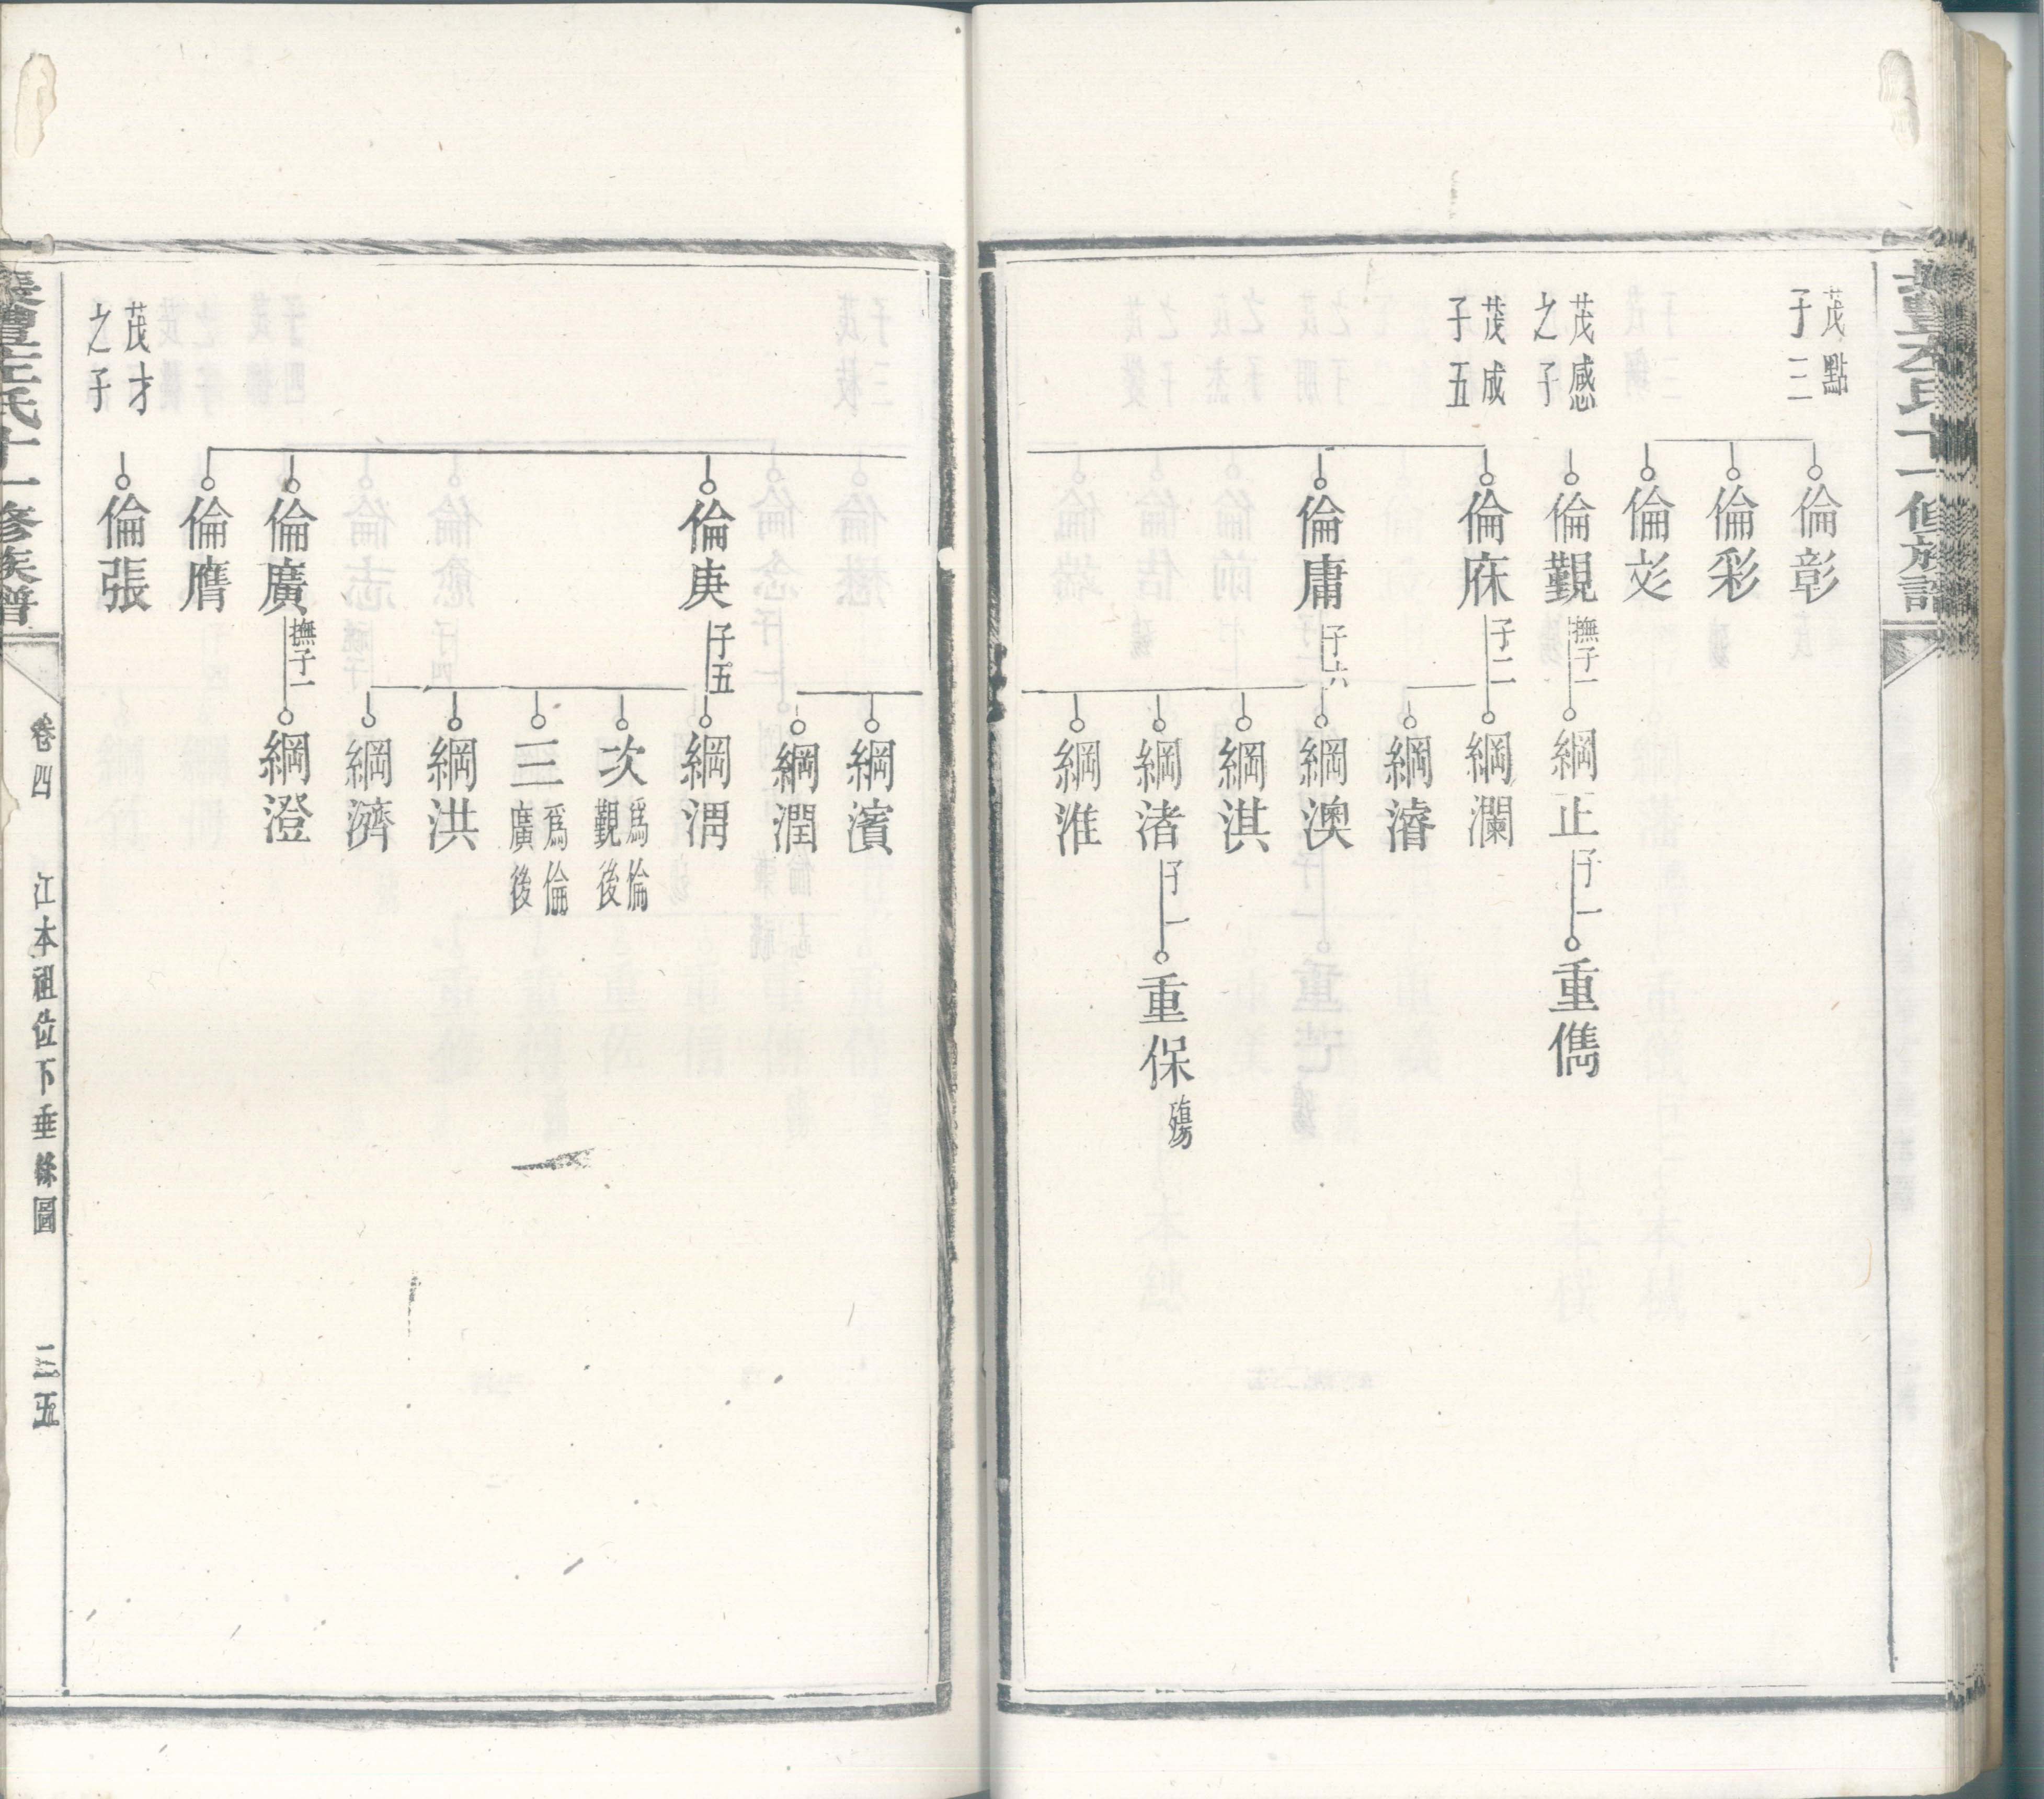 茂點
子三
倫彰
倫彩
倫彣
茂感
之子
倫觀
撫子一
綱正
子一
重儁
茂成
子五
倫庥
子二
綱瀾
綱濬
倫庸
子六
綱澳
綱淇
綱渚
子一
重保
殤
綱淮
綱濱
綱潤
倫庚
子五
綱渭
次
爲倫
觀後
三
爲倫
廣後
綱洪
綱濟
倫廣
撫子一
綱澄
倫膺
茂才
之子
倫張
氏十一修族譜
卷四
江本祖位下垂絲圖
三五